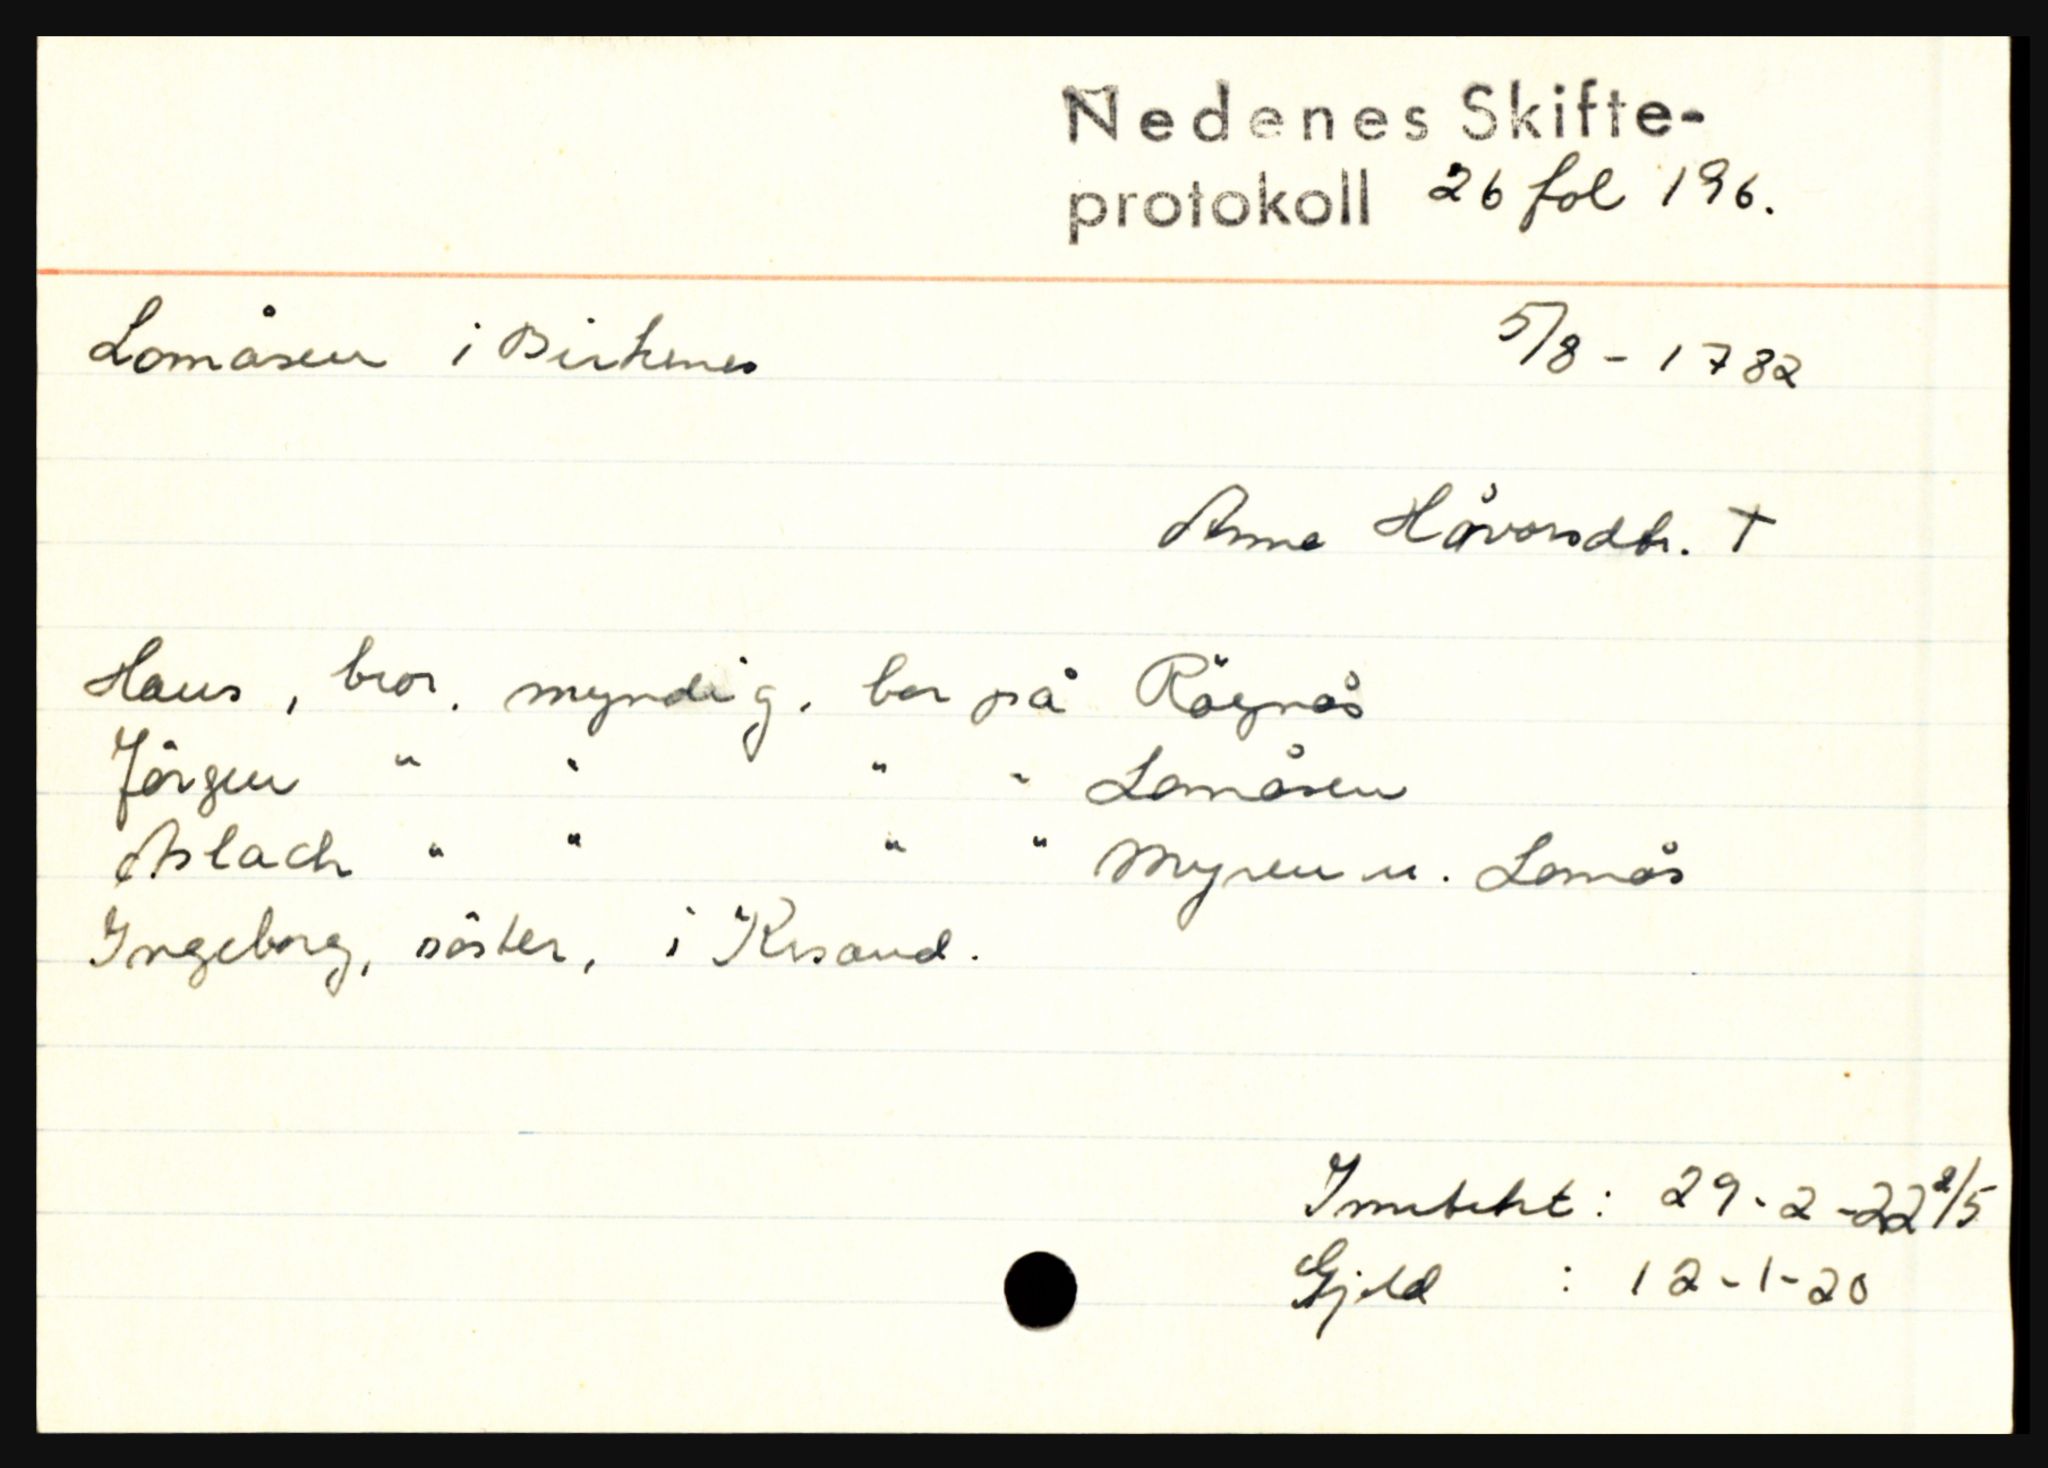 Nedenes Skifte-
protokoll 26 fol 196.
Lomåsen i Birkenes 5/8 - 1782
Anne Håvorsdtr. †
Hans, bror, myndig, bor på Rögnås
Jörgen " " " " Lomåsen
Aslach " " " " Myren u. Lomås
Ingeborg, söster, i Krsand.
29-2-22 2/5
Gjeld : 12-1-20